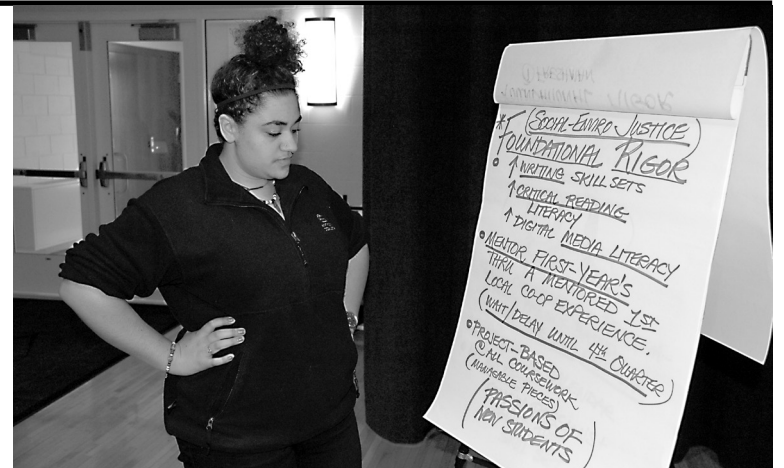 * (SOCIAL-ENVIRO JUSTICE)
FOUNDATIONAL RIGOR
• ↑ WRITING SKILL SETS
↑ CRITICAL READING
LITERACY
↑ DIGITAL MEDIA LITERACY
• MENTOR FIRST-YEAR'S
THRU A MENTORED 1ST
LOCAL CO-OP EXPERIENCE.
(WAIT/DELAY UNTIL 4TH QUARTER)
• PROJECT-BASED
@ ALL COURSEWORK
(MANAGEABLE PIECES)
(PASSIONS OF
NEW STUDENTS)